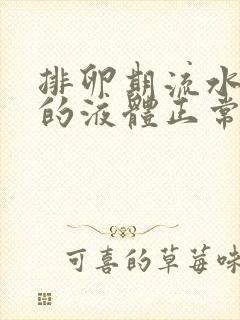 排卵期流水
的液體正常
可喜的草莓味